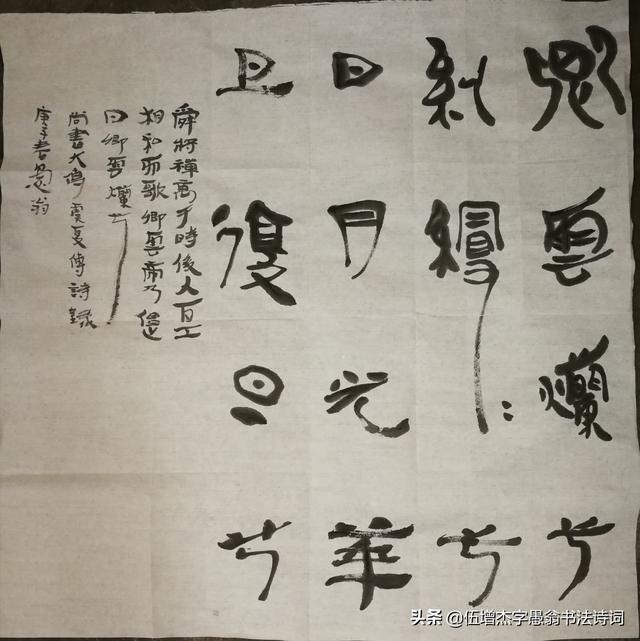 卿雲爛兮
糾縵：兮
日月光華
旦復旦兮
舜將禪禹于時俊人百工
相和而歌卿雲帝乃倡
曰卿雲爛兮
尚書大傳虞夏傳詩錄
庚子春愚翁
头条 @伍增杰字愚翁书法诗词